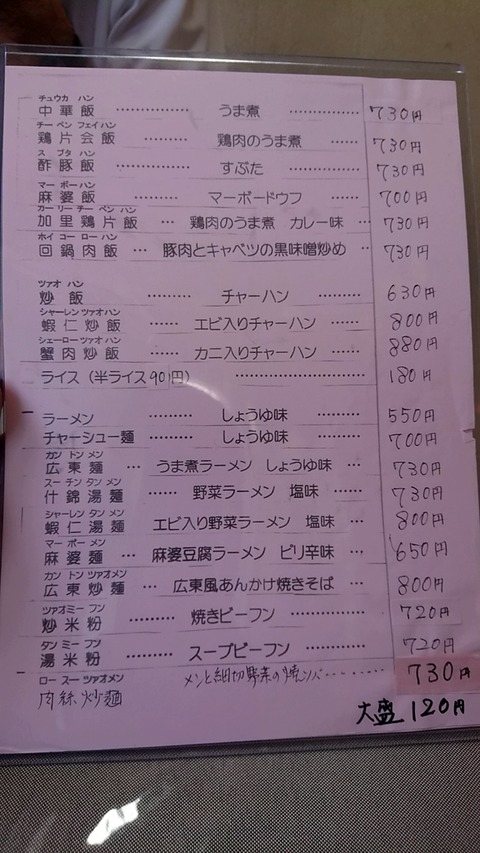 チュウカ ハン
中華飯 …………… うま煮 ………… 730円
チー ペン フェイハン
鶏片会飯 ……… 鶏肉のうま煮 ……… 730円
ス ブタ ハン
酢豚飯 …………… すぶた ………… 730円
マー ボー ハン
麻婆飯 ………… マーボードウフ ……… 700円
カー リー チー ペン ハン
加里鶏片飯 … 鶏肉のうま煮 カレー味 … 730円
ホイ コー ロー ハン
回鍋肉飯 … 豚肉とキャベツの黒味噌炒め … 730円
ツァオ ハン
炒飯 ……… チャーハン ……… 630円
シャーレン ツァオ ハン
蝦仁炒飯 ……… エビ入りチャーハン ……… 800円
シェーロー ツァオ ハン
蟹肉炒飯 ……… カニ入りチャーハン ……… 880円
ライス (半ライス901円) ………………… 180円
ラーメン ……… しょうゆ味 ……… 550円
チャーシュー麺 ……… しょうゆ味 ……… 700円
カン トン メン
広東麺 … うま煮ラーメン しょうゆ味 … 730円
スー チン タン メン
什錦湯麺 …… 野菜ラーメン 塩味 …… 730円
シャーレン タン メン
蝦仁湯麺 エビ入り野菜ラーメン 塩味 … 800円
マー ボー メン
麻婆麺 … 麻婆豆腐ラーメン ピリ辛味 … 650円
カン トン ツァオメン
広東炒麺 … 広東風あんかけ焼きそば … 800円
ツァオミー フン
炒米粉 …… 焼きビーフン ………… 720円
タン ミー フン
湯米粉 …… スープビーフン ………… 720円
ロー スー ツァオメン
肉絲炒麺 メンと細切野菜の焼ソバ………… 730円
大盛 120円